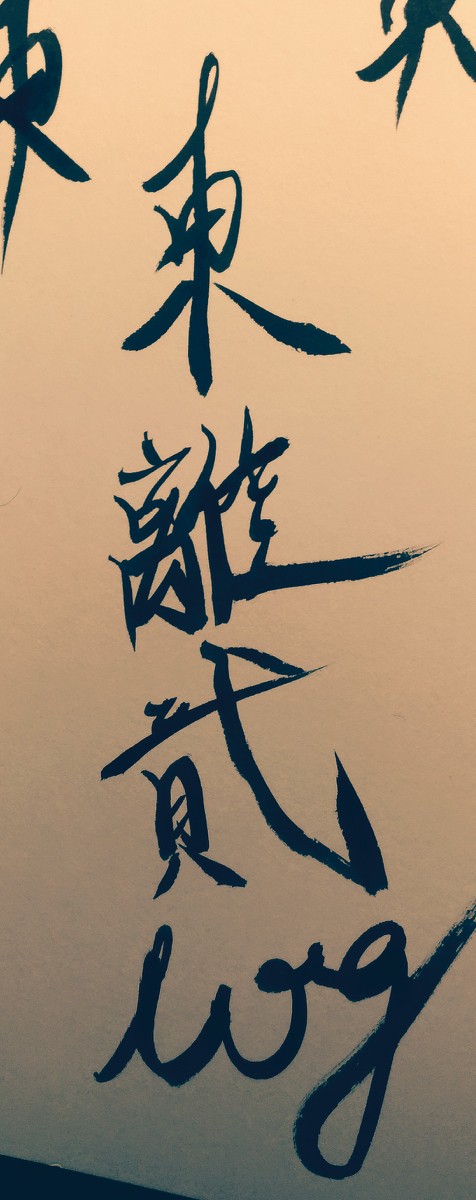 東
離
貳
wg